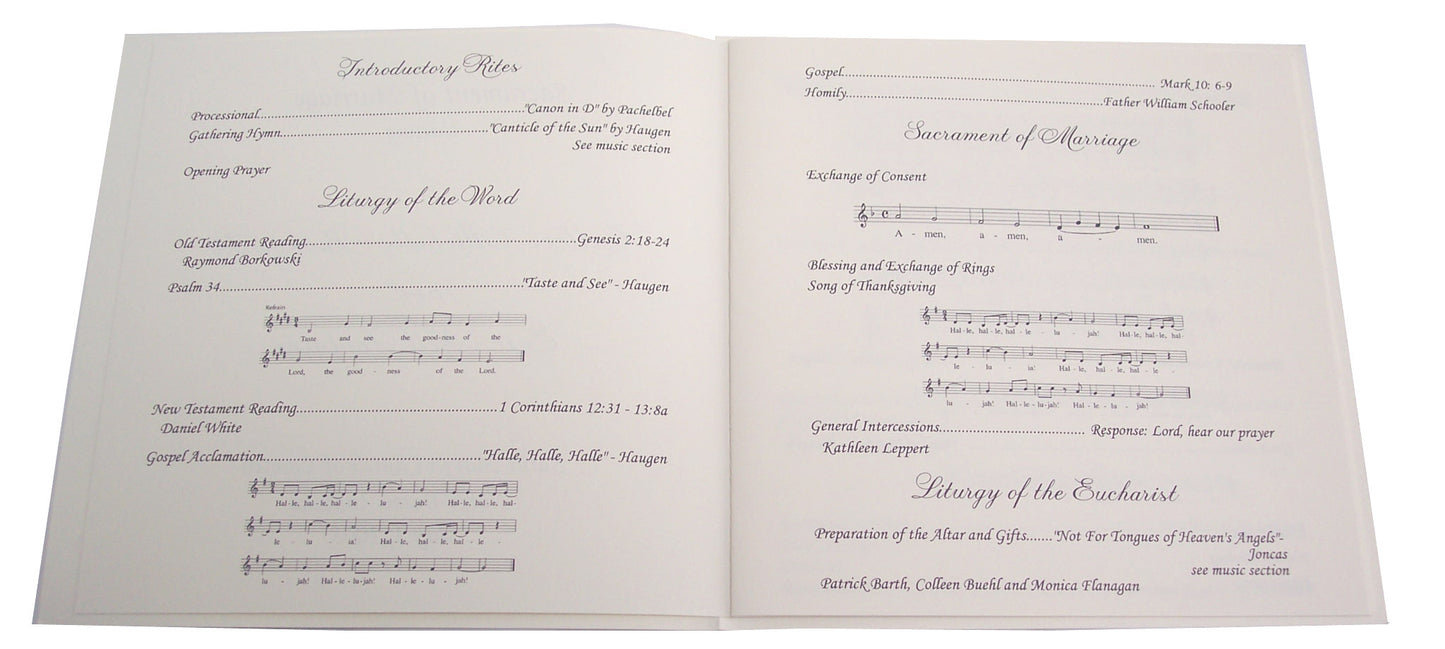 Introductory Rites
Processional................................"Canon in D" by Pachelbel
Gathering Hymn................................"Canticle of the Sun" by Haugen
See music section
Opening Prayer
Liturgy of the Word
Old Testament Reading................................Genesis 2:18-24
Raymond Borkowski
Psalm 34................................"Taste and See" - Haugen
Refrain
Taste and see the good-ness of the
Lord, the good - ness of the Lord.
New Testament Reading................................1 Corinthians 12:31 - 13:8a
Daniel White
Gospel Acclamation................................"Halle, Halle, Halle" - Haugen
Hal - le, hal - le, hal - le - lu - jah! Hal - le, hal - le, hal-
le - lu - ia! Hal - le, hal - le, hal - le -
lu - jah! Hal - le - lu-jah! Hal - le - lu - jah!
Gospel................................Mark 10: 6-9
Homily................................Father William Schooler
Sacrament of Marriage
Exchange of Consent
A - men, a - men, a - men.
Blessing and Exchange of Rings
Song of Thanksgiving
Hal - le, hal - le, hal - le - lu - jah! Hal - le, hal - le, hal-
le - lu - ia! Hal - le, hal - le, hal - le -
lu - jah! Hal - le - lu-jah! Hal - le - lu - jah!
General Intercessions................................ Response: Lord, hear our prayer
Kathleen Leppert
Liturgy of the Eucharist
Preparation of the Altar and Gifts......."Not For Tongues of Heaven's Angels"-
Joncas
see music section
Patrick Barth, Colleen Buehl and Monica Flanagan